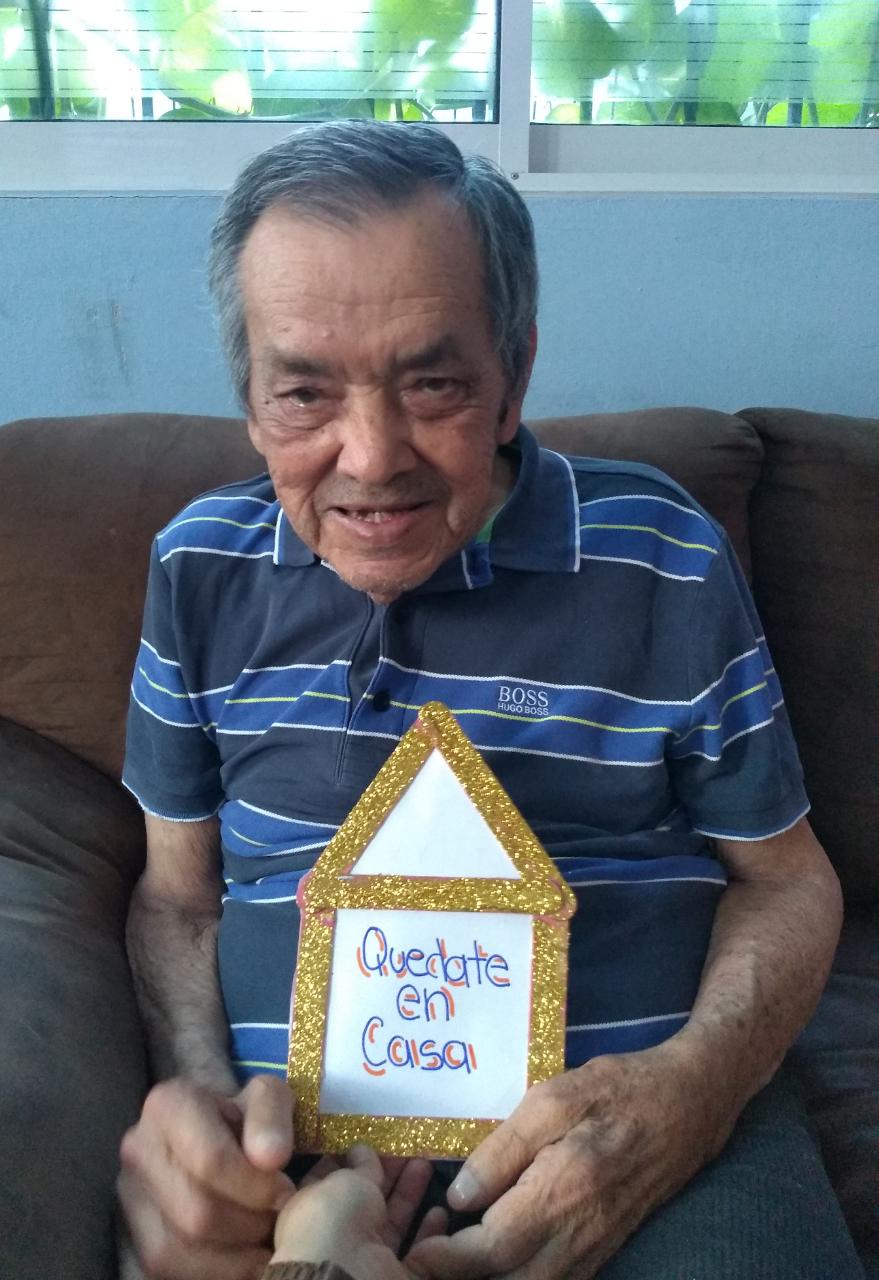 BOSS
HUGO BOSS
Quedate
en
Casa